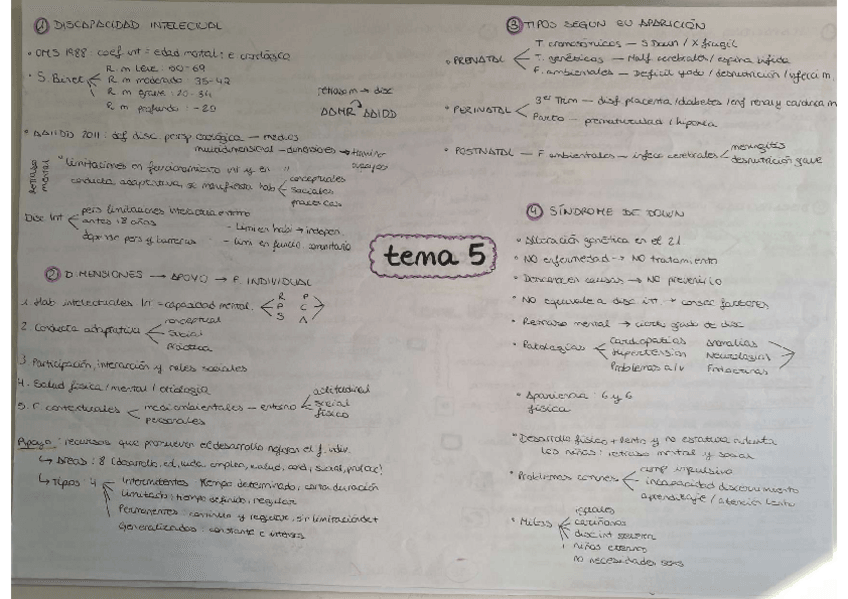 ① DISCAPACIDAD INTELECTUAL
• OMS 1988: coef. int = edad mental : e cronológica
• S. Binet
R. m leve: 50-69
R. m moderado 35-42
R. m grave: 20-34
R. m profundo: -20
retraso m → disc
AAMR AAIDD
• AAIDD 2011: def disc persp. ecológica — medios
multidimensional — dimensiones → término
retraso mental
"Limitaciones en funcionamiento int y en
conducta adaptativa, se manifiesta hab
conceptuales
sociales
prácticas
Disc Int
pers limitaciones interactúa entorno
antes 18 años
depende pers y barreras
- Lim en hab → indepen.
- Lim en funcio. comunitario
② DIMENSIONES → APOYO → F. INDIVIDUAL
1. Hab intelectuales Int = capacidad mental
R P
P C
S A
2. Conducta adaptativa
conceptual
social
práctica
3. Participación, interacción y roles sociales
4. Salud física / mental / etiología
5. F. contextuales
medioambientales — entorno
personales
actitudinal
social
físico
Apoyo: recursos que promueven el desarrollo mejoran el f. indiv.
↳ áreas: 8 (desarrollo, ed, vida, empleo, salud, cond, social, protec)
↳ Tipos 4
Intermitentes tiempo determinado, corta duración
Limitado: tiempo definido, regular
Permanentes continuo y regular, sin limitación de t
Generalizados: constante e intenso
tema 5
③ TIPOS SEGÚN SU APARICIÓN
• PRENATAL
T. cromosómicos — S Down / X frágil
T. genéticos — Malf cerebrales / espina bífida
F. ambientales — Déficit yodo / desnutrición / infecci m.
• PERINATAL
3er Trim — disf. placenta / diabetes / enf renal y cardiaca m
Parto — prematuridad / hipoxia
• POSTNATAL — F ambientales — infecc cerebrales
meningitis
desnutrición grave
④ SÍNDROME DE DOWN
• Alteración genética en el 21
• NO enfermedad → NO tratamiento
• Desconocen causas → NO prevenirlo
• NO equivale a disc int. + consec factores
• Retraso mental → cierto grado de disc
• Patologías
Cardiopatías Anomalías
Hipertensión Neurológicas
Problemas a/v
• Apariencia: 6 y 6
física
• Desarrollo físico + lento y no estática
los niños: retraso mental y social
• Problemas comunes
comp impulsivo
incapacidad discernimiento
aprendizaje / atención lento
• Mitos
iguales
cariñosos
disc int severa
niños eternos
no necesidades sexs